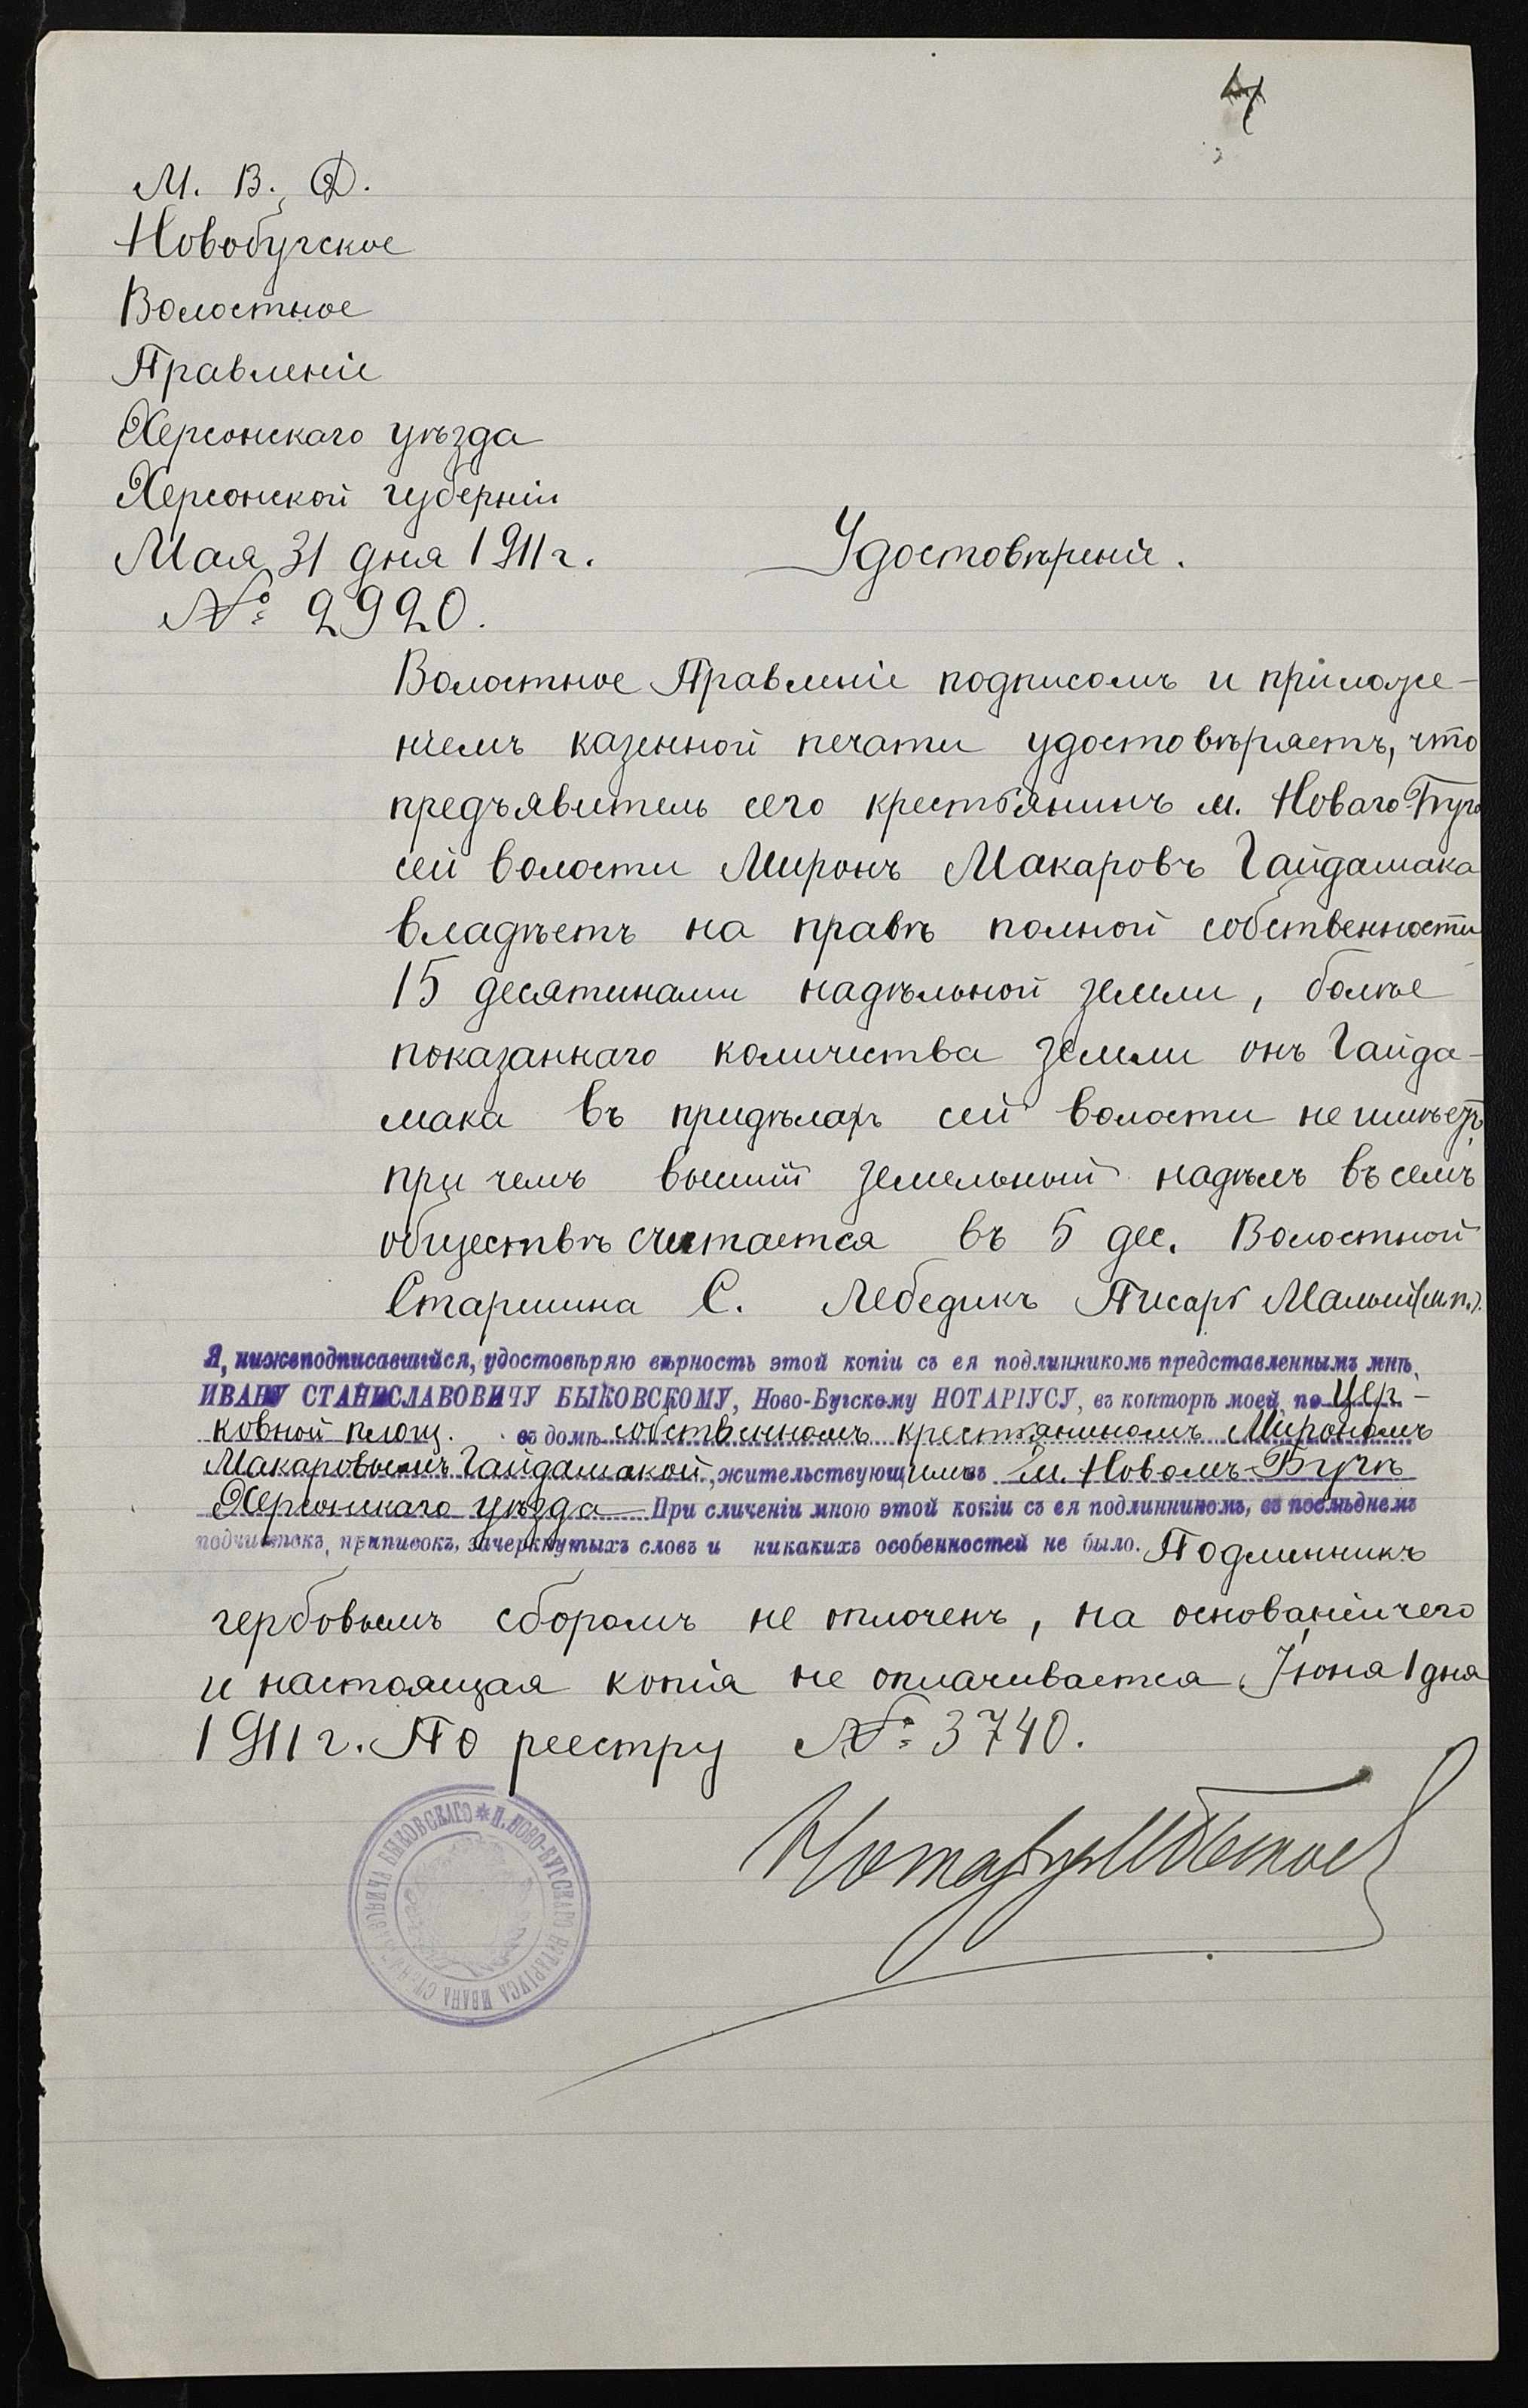 4
М. В. Д.
Новобугское
Волостное
Правленіе
Херсонскаго уѣзда
Херсонской губерніи
Мая 31 дня 1911 г.
Удостовѣреніе.
№ 2920.
Волостное Правленіе подписомъ и приложе-
ніемъ казенной печати удостовѣряетъ, что
предъявитель сего крестьянинъ м. Новаго-Буга
сей волости Миронъ Макаровъ Гайдамака
владѣетъ на правѣ полной собственности
15 десятинами надѣльной земли, болѣе
показаннаго количества земли онъ Гайда-
мака въ придѣлахъ сей волости не имѣетъ,
при чемъ высшій земельный надѣлъ въ семъ
обществѣ считается въ 5 дес. Волостной
Старшина С. Лебедикъ Писарь Малый (м.п.).
Я, нижеподписавшійся, удостовѣряю вѣрность этой копіи съ ея подлинникомъ представленнымъ мнѣ,
ИВАНУ СТАНИСЛАВОВИЧУ БЫКОВСКОМУ, Ново-Бугскому НОТАРІУСУ, въ конторѣ моей, по Цер-
ковной площ. въ домѣ собственномъ крестьяниномъ Мирономъ
Макаровымъ Гайдамакой, жительствующимъ въ м. Новомъ-Бугѣ
Херсонскаго уѣзда При сличеніи мною этой копіи съ ея подлинникомъ, въ послѣднемъ
подчистокъ, приписокъ, зачеркнутыхъ словъ и никакихъ особенностей не было. Подлинникъ
гербовымъ сборомъ не оплоченъ, на основаніи чего
и настоящая копія не оплачивается Іюня 1 дня
1911 г. По реестру № 3740.
Нотаріус
* П. НОВО-БУГСКАГО НОТАРІУСА ИВАНА СТАНИСЛАВОВИЧА БЫКОВСКАГО